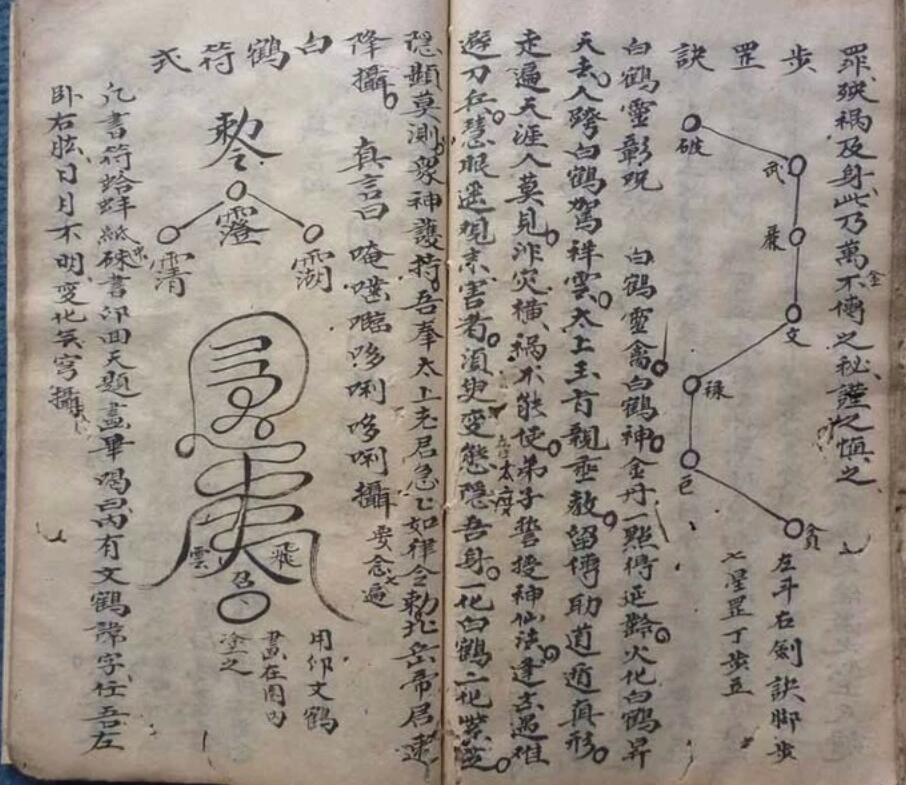 罪殃禍及身此乃萬金不傳之秘謹之慎之
步罡訣
破
武
文
祿
巨
貪
左斗右劍訣脚步
七星罡丁步立
白鶴靈彰咒 白鶴靈禽白鶴神金丹一點得延齡火化白鶴昇
天去人跨白鶴駕祥雲太上玉旨親垂教留傳助道遁真形
走遍天涯人莫見非災橫禍不能使弟子誓授神仙法逢去遇难
避刀兵慧眼遥覌來害者須臾変態隱吾身一化白鶴二化紫芝
吾太度
隱顯莫測眾神護持吾奉太上老君急急如律令勅北岳帝君速
降攝 真言曰 唵 哆唎哆唎攝 要念七遍
白鶴符式
勅令
靈
霐清
湖
飛
雲
召
用仰文鶴
畫在圈内
塗之
凡書符蛤蚌紙硃書仰面天題畫畢喝曰内有文鶴諱字仕吾左
卧右肱日月不明变化无穹攝